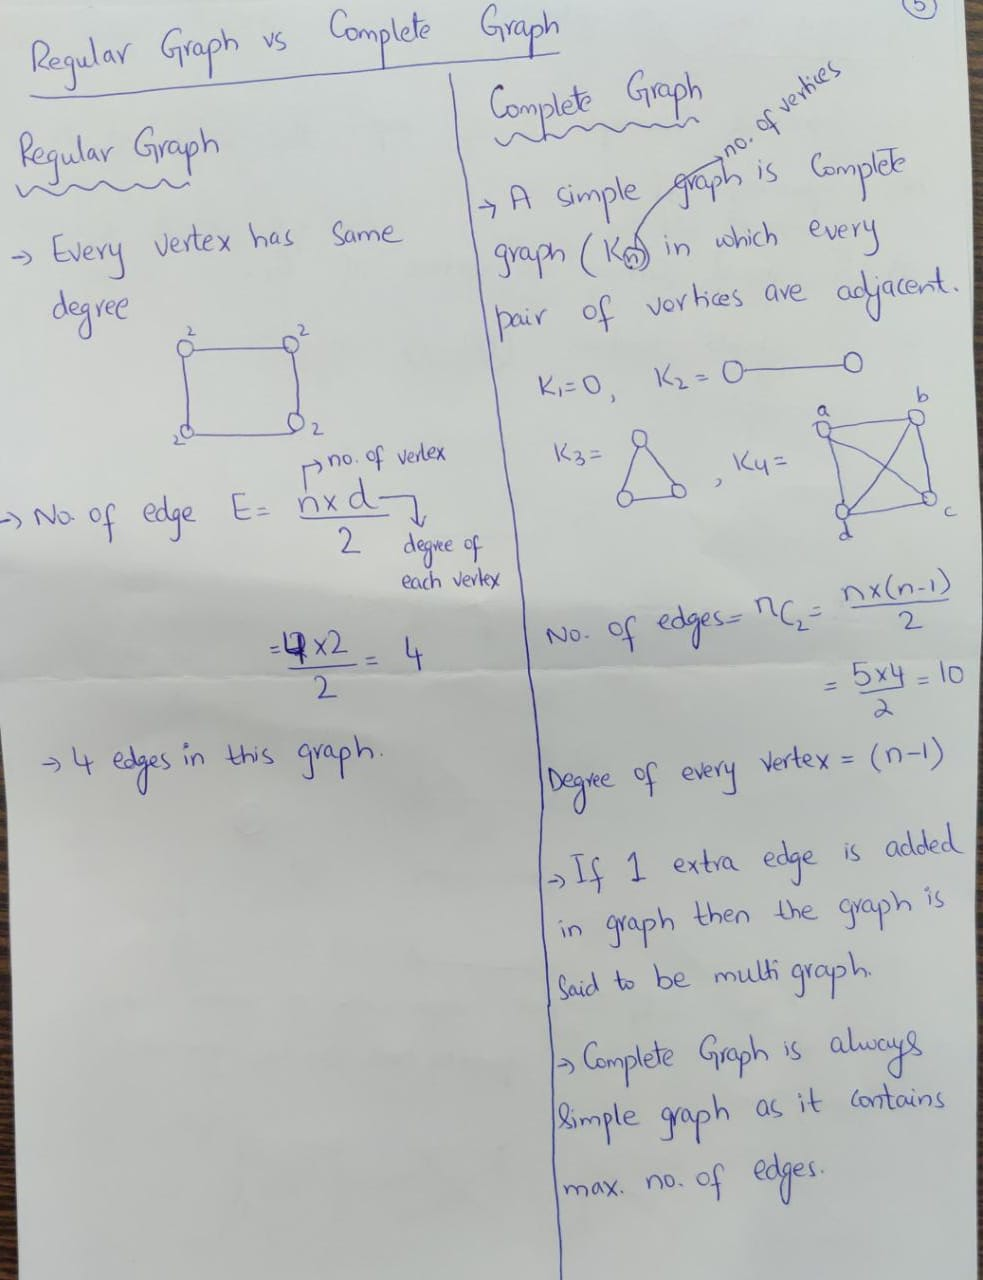 5
Regular Graph vs Complete Graph
Regular Graph
→ Every vertex has same
degree
2 2
2 2
→ No. of edge E = n×d/2
no. of vertex
degree of
each vertex
= 4×2/2 = 4
→ 4 edges in this graph.
Complete Graph
no. of vertices
→ A simple graph is Complete
graph (Kn) in which every
pair of vertices are adjacent.
K1=O, K2=
K3= , K4=
a b
d c
No. of edges= nC2= n×(n-1)/2
= 5×4/2 = 10
Degree of every vertex = (n-1)
→ If 1 extra edge is added
in graph then the graph is
said to be multi graph.
→ Complete Graph is always
simple graph as it contains
max. no. of edges.